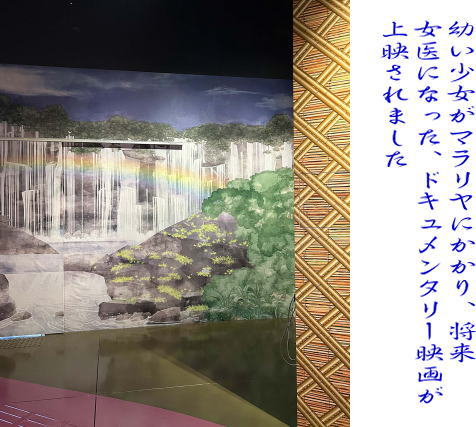 幼い少女がマラリヤにかかり、将来
女医になった、ドキュメンタリー映画が
上映されました